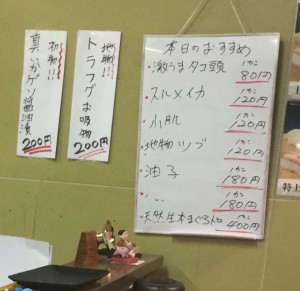 初物!!
真いかゲソ醤油漬
200円
地物!!
トラフグお吸物
200円
本日のおすすめ
・激うまタコ頭 1カン 80円
・スルメイカ 1カン 120円
・小肌 1カン 120円
・地物ツブ 1カン 120円
・油子 1カン 180円
・〃 1カン 180円
・天然生本まぐろトロ 1カン 400円
特上